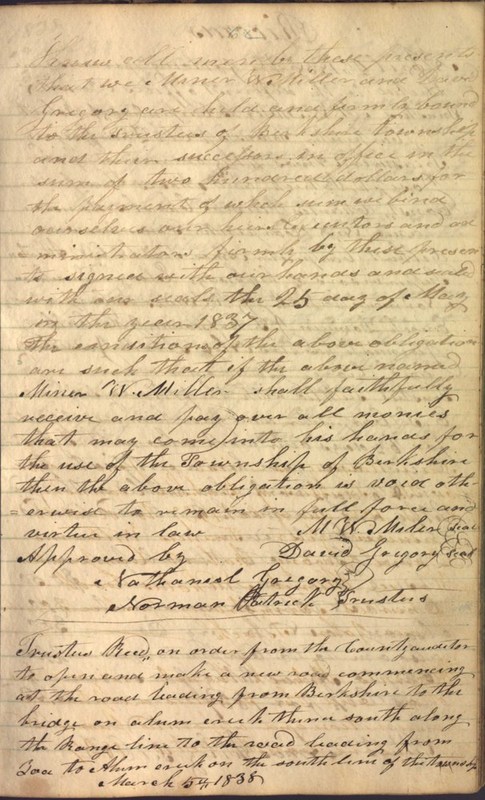 Know all men by these presents
that we Miner W Miller and David
Gregory are held and firmly bound
to the trustees of Berkshire township
and their successors in office in the
sum of two hundred dollars for
the payment of which sum we bind
ourselves our heirs executors and ad
ministrators firmly by these presen
ts signed with our hands and seald
with our seals the 25 day of May
in the year 1837
the condition of the above obligation
are such that if the above named
Miner W. Miller shall faithfully
receive and pay over all monies
that may come into his hands for
the use of the Township of Berkshire
then the above obligation is void oth
=erwise to remain in full force and
virtue in law M W Miler seal
Approved by David Gregory seal
Nathaniel Gregory
Norman Patrick Trustus
Trustus Recd,, on order from the County auditor
to open and make a new road commencing
at the road leading from Berkshire to the
bridge on alum creek thence south along
the Range line to the road leading from
to Alum creek on the south line of the township
March 5th 1838